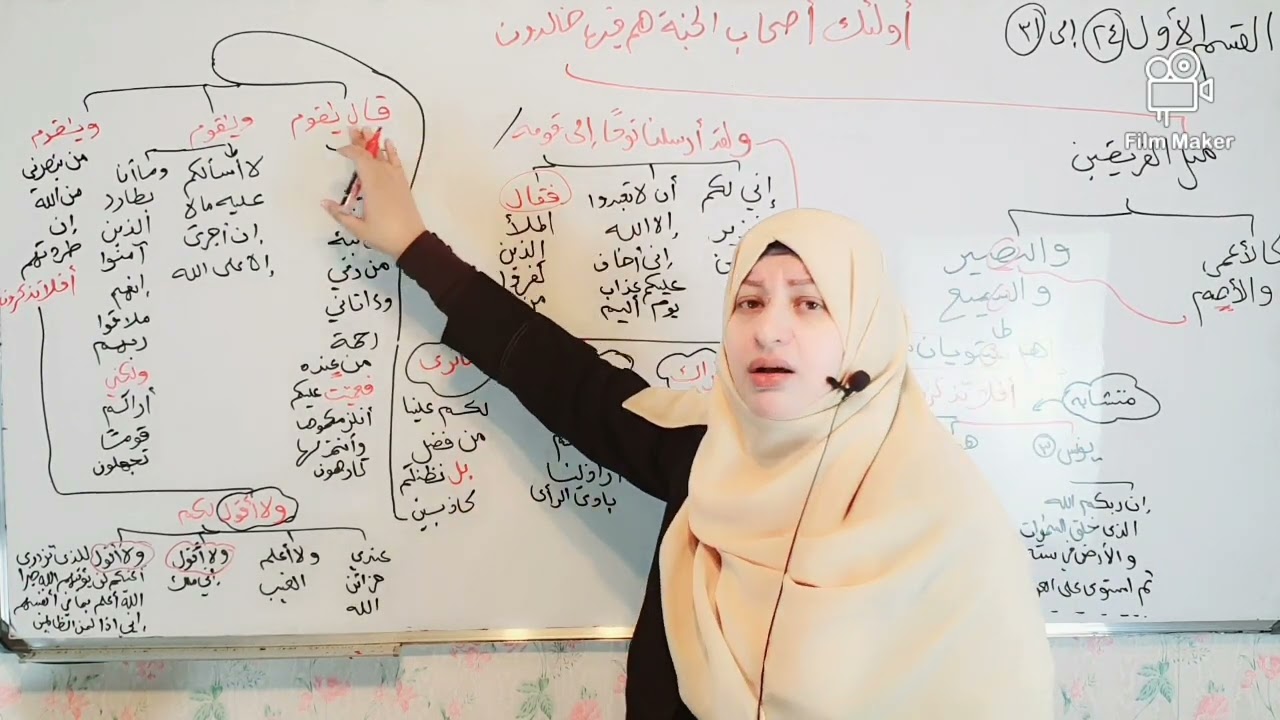 القسم الأول ٢٤ إلى ٣١
أولئك أصحاب الجنة هم فيها خالدون
Film Maker
مثل الفريقين
كالأعمى
والأصم
والبصير
والسميع
هل يستويان
أفلا تذكرون
متشابه
يونس ٣
إن ربكم الله
الذى خلق السموات
والأرض في ستة
ثم استوى على
ولقد أرسلنا نوحًا إلى قومه
إني لكم
نذير
أن لا تعبدوا
إلا الله
إني أخاف
عليكم عذاب
يوم أليم
فقال
الملأ
الذين
كفروا
من
أراذلنا
بادى الرأى
نرى
لكم علينا
من فضل
بل نظنكم
كاذبين
قال يٰقوم
من ربي
وءاتاني
رحمة
من عنده
فعميت عليكم
أنلزمكموها
وأنتم لها
كارهون
ويٰقوم
لا أسألكم
عليه مالا
إن أجرى
إلا على الله
وما أنا
بطارد
الذين
آمنوا
إنهم
ملاقوا
ربهم
ولكني
أراكم
قوما
تجهلون
ويٰقوم
من ينصرني
من الله
إن
طردتهم
أفلا تذكرون
ولا أقول لكم
عندي
خزائن
الله
ولا أعلم
الغيب
ولا أقول
إني ملك
ولا أقول للذين تزدرى
أعينكم لن يؤتيهم الله خيرا
الله أعلم بما في أنفسهم
إني إذا لمن الظالمين